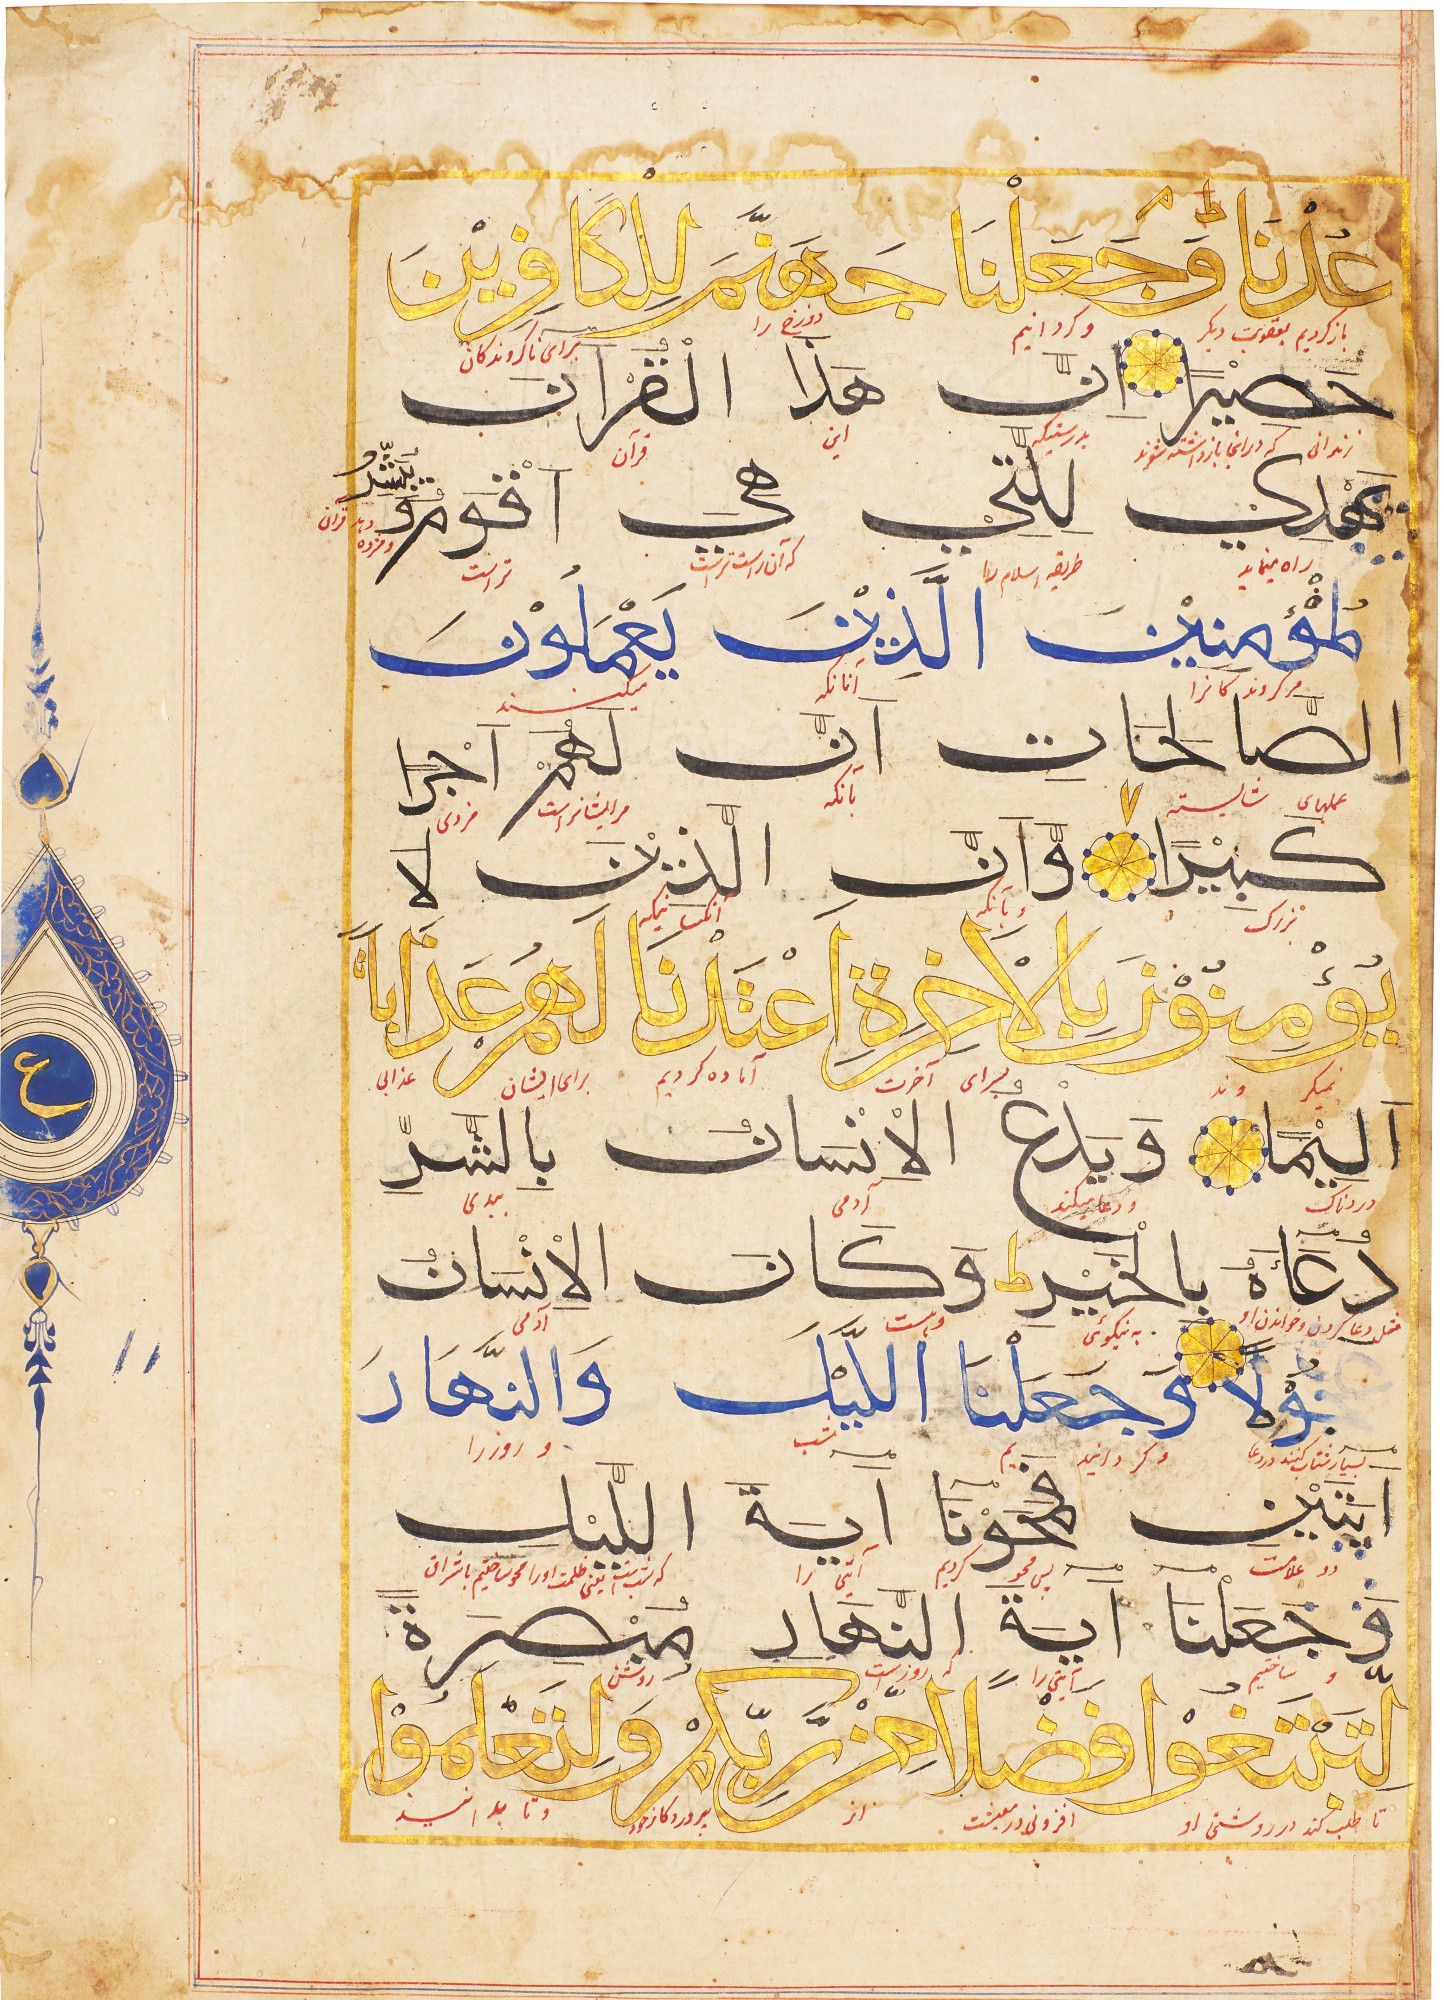 عُدْنَا ط وَجَعَلْنَا جَهَنَّمَ لِلْكَافِرِيْنَ
بازکردیم بعقوبت دیگر و گردانیم دوزخ را برای ناگروندگان
حَصِيْرًا اِنَّ هٰذَا الْقُرْاٰنَ
زندانی که درانجا بازداشته شوند بدرستیکه این قرآن
يَهْدِيْ لِلَّتِيْ هِيَ اَقْوَمُ وَيُبَشِّرُ
راه مینماید طریقه اسلام را که آن راست تراست تر است و مژده دهد قران
الْمُؤْمِنِيْنَ الَّذِيْنَ يَعْمَلُوْنَ
مر گروندکانرا آنانکه میکنند
الصَّالِحَاتِ اَنَّ لَهُمْ اَجْرًا
عملهای شایسته بآنکه مرایشانراست مزدی
كَبِيْرًا وَّاَنَّ الَّذِيْنَ لَا
بزرگ و بآنکه آنکسانیکه
يُؤْمِنُوْنَ بِالْاٰخِرَةِ اَعْتَدْنَا لَهُمْ عَذَابًا
نمیکروند بسرای آخرت آماده کردیم برای ایشان عذابی
اَلِيْمًا وَيَدْعُ الْاِنْسَانُ بِالشَّرِّ
دردناک و دعا میکند آدمی ببدی
دُعَاۤءَهٗ بِالْخَيْرِ ط وَكَانَ الْاِنْسَانُ
مثل دعا کردن و خواندن او به نیکوئی و هست آدمی
عَجُوْلًا وَجَعَلْنَا اللَّيْلَ وَالنَّهَارَ
بسیار شتاب کننده در دعا و گردانیدیم شب و روز را
اٰيَتَيْنِ فَمَحَوْنَا اٰيَةَ اللَّيْلِ
دو علامت پس محو کردیم آیتی را که شب است
وَجَعَلْنَا اٰيَةَ النَّهَارِ مُبْصِرَةً
و ساختیم آیتی را که روز است روشن
لِّتَبْتَغُوْا فَضْلًا مِّنْ رَّبِّكُمْ وَلِتَعْلَمُوْا
تا طلب کنند در روشنی او افزونی در معیشت از پروردکار خود و تا بدانید
ع